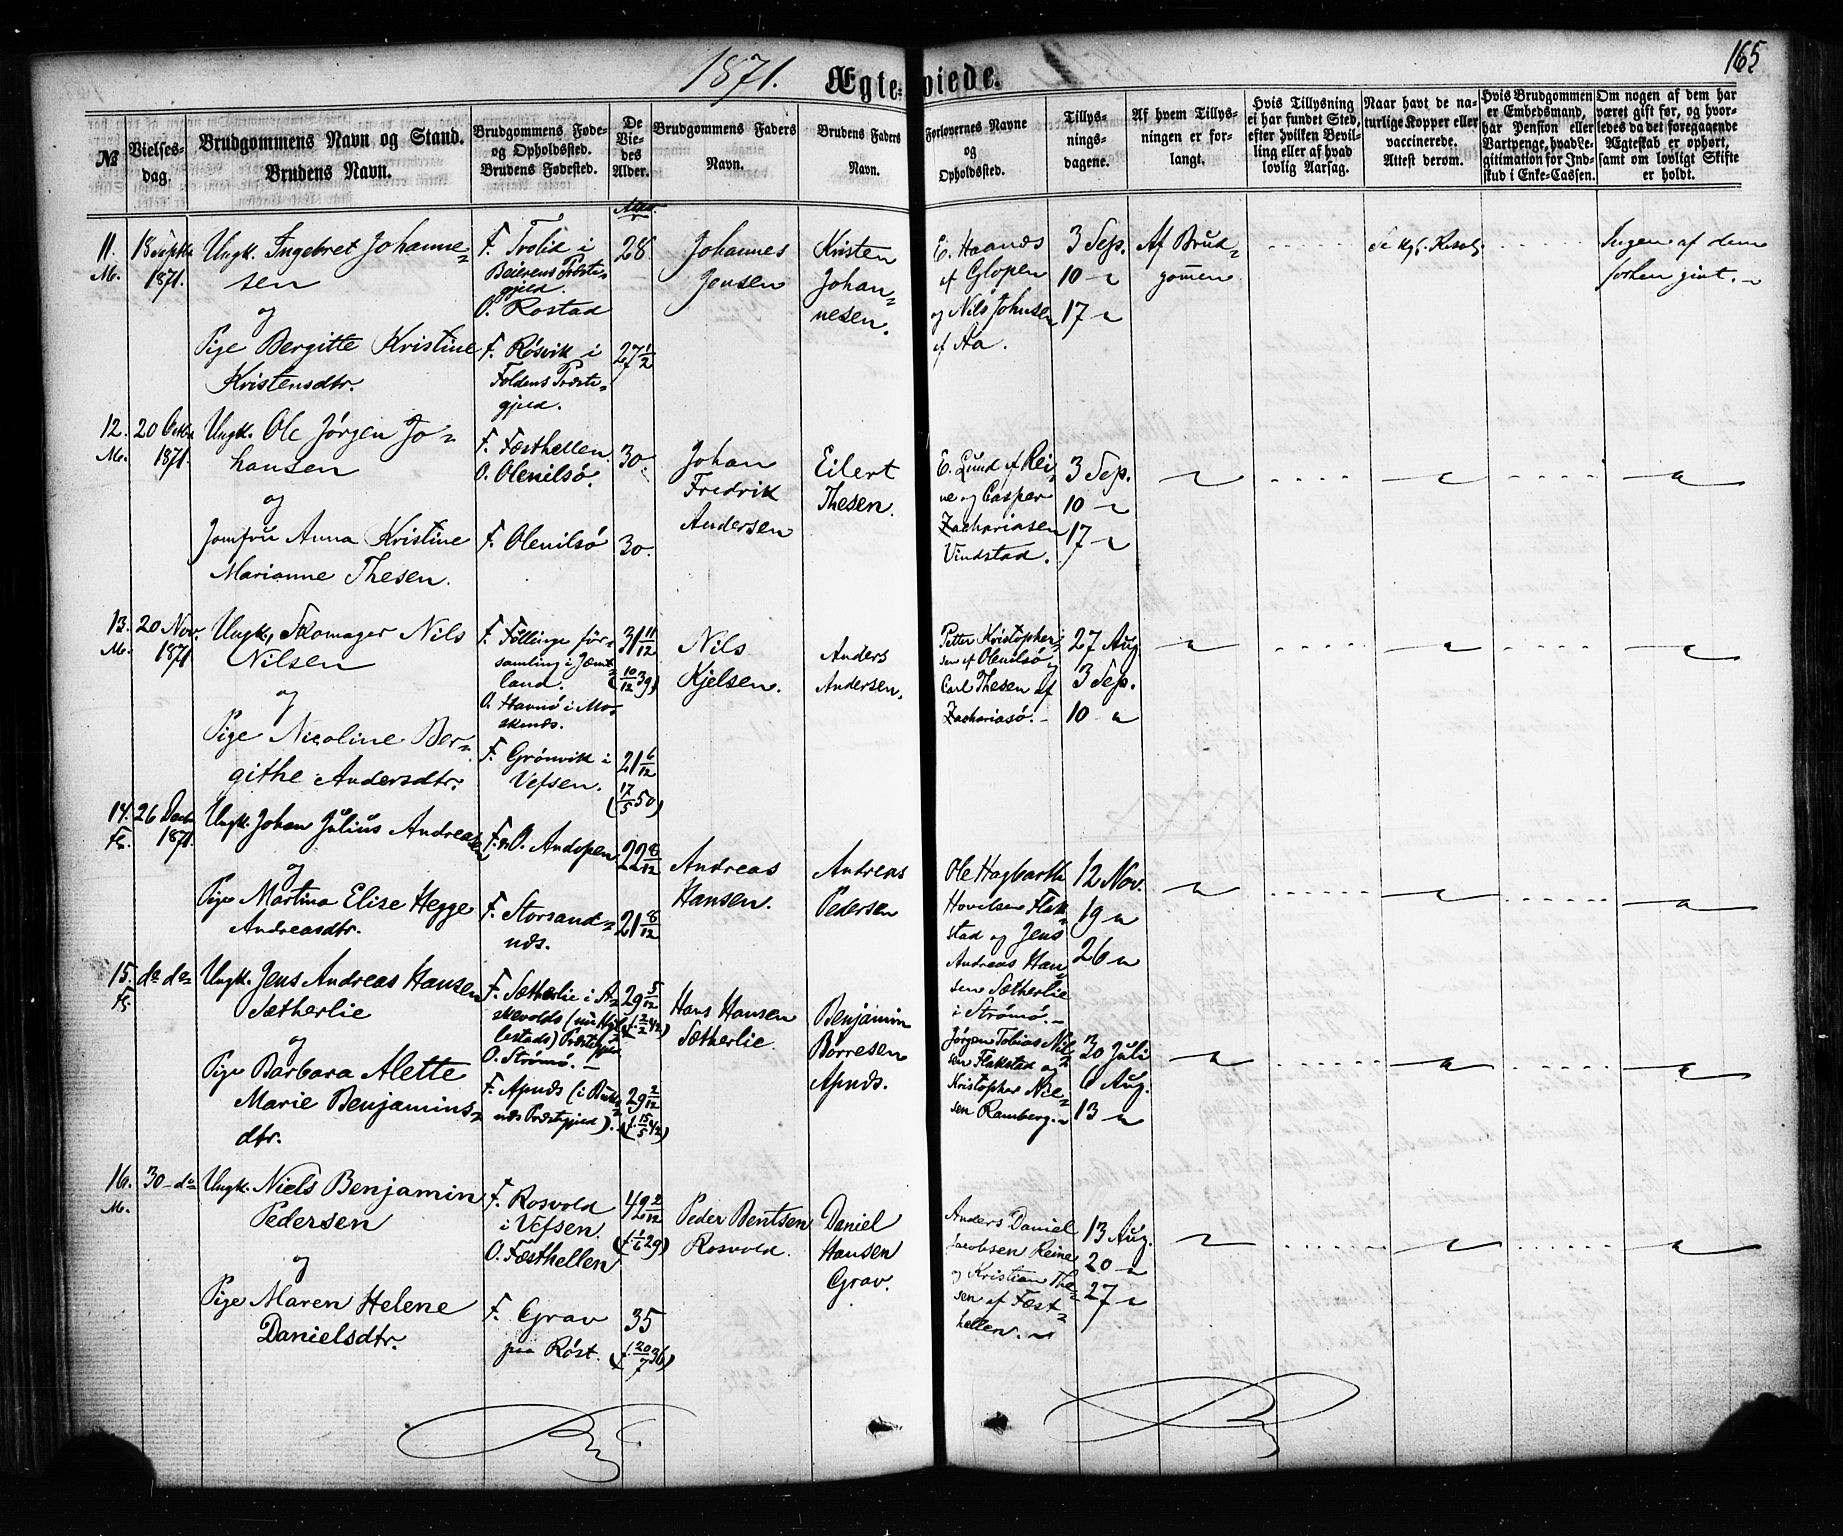 1871. Ægteviede. 165
№
Vielses-
dag.
Brudgommens Navn og Stand.
Brudens Navn.
Brudgommens Føde-
og Opholdssted.
Brudens Fødested.
De
Vie-
des
Alder.
Brudgommens Faders
Navn.
Brudens Faders
Navn.
Forlovernes Navne
og
Opholdssted.
Tillys-
nings-
dagene.
Af hvem Tillys-
ningen er for-
langt.
Hvis Tillysning
ei har fundet Sted,
efter hvilken Bevil-
ling eller af hvad
lovlig Aarsag.
Naar havt de na-
turlige Kopper eller
vaccinerede.
Attest derom.
Hvis Brudgommen
er Embedsmand,
har Pension eller
Vartpenge, hvad Le-
gitimation for Ind-
skud i Enke-Cassen.
Om nogen af dem har
været gift før, og hvor-
ledes da det foregaaende
Ægteskab er ophørt,
samt om lovligt Skifte
er holdt.
Aar.
11.
M.
18 Septbr
1871.
Ungk. Ingebret Johanne-
sen
og
Pige Bergitte Kristine
Kristensdtr.
F. Trolid i
Beierens Præste-
gjeld.
O. Rostad
F. Røsvik i
Foldens Præste-
gjeld.
28
27 1/2
Johannes
Jensen
Kristen
Johan-
nesen.
E. Haands
af Glopen
og Nils Johnsen
af Aa.
3 Sep.
10 -
17 -
Af Brud-
gomen
Se Kgl. Resol.
Ingen af dem
forhen givt. -
12.
M.
20 Octbr
1871.
Ungk. Ole Jørgen Jo-
hansen
og
Jomfru Anna Kristine
Marianne Thesen.
F. Fæsthellen.
O. Olenilsø.
F. Olenilsø
30.
30.
Johan
Fredrik
Andersen
Eilert
Thesen.
E. Lund af Rei-
ne og Casper
Zachariasen
Vindstad.
3 Sep.
10 -
17 -
13.
M.
20 Nov.
1871
Ungk., Skomager Nils
Nilsen
og
Pige Nicoline Ber-
githe Andersdtr.
F. Föllinge för-
samling i Jæmt-
land.
O. Havnø i Mo-
skenæs.
F. Grønvik i
Vefsen.
31 11/12
(10/12 39)
21 6/12
(17/5 50)
Nils
Kjelsen.
Anders
Andersen.
Petter Kristopher-
sen af Olenilsø og
Carl Thesen af
Zachariasø. -
27 Aug
3 Sep.
10 -
14.
Fl.
26 Decbr
1871.
Ungk. Johan Julius Andreasen
og
Pige Martina Elise Hegge
Andreasdtr.
F. & O. Andopen
F. Storsand-
næs.
22 8/12
21 8/12
Andreas
Hansen.
Andreas
Pedersen
Ole Hagbarth
Hovelsen Flak-
stad og Jens
Andreas Han-
sen Sætherlie
i Strømø. -
12 Nov.
19 -
26 -
15.
Fl.
do do
Ungk. Jens Andreas Hansen
Sætherlie
og
Pige Barbara Alette
Marie Benjamins-
dtr.
F. Sætherlie i A-
skevolds (nu Hyl-
lestads) Præstegjeld
O. Strømø. -
F. Apnæs (i Buks-
næs Præstegjeld).
29 5/12
29 2/12
(f. 15/5 42)
Hans Hansen
Sætherlie
Benjamin
Børresen
Apnæs.
Jørgen Tobias Nil-
sen Flakstad og
Kristopher Niel-
sen Ramberg. -
30 Juli
6 Aug.
13 -
16.
M.
30 - do
Ungk. Niels Benjamin
Pedersen
og
Pige Maren Helene
Danielsdtr.
F. Rosvold
i Vefsen.
O. Fæsthellen
F. Grav
paa Røst.
42 2/12
(f. 1/6 29)
35
(f. 20/7 36)
Peder Bentsen
Rosvold.
Daniel
Hansen
Grav.
Anders Daniel
Jacobsen Reine
og Kristian The-
sen af Fæst-
hellen. -
13 Aug.
20 -
27 -